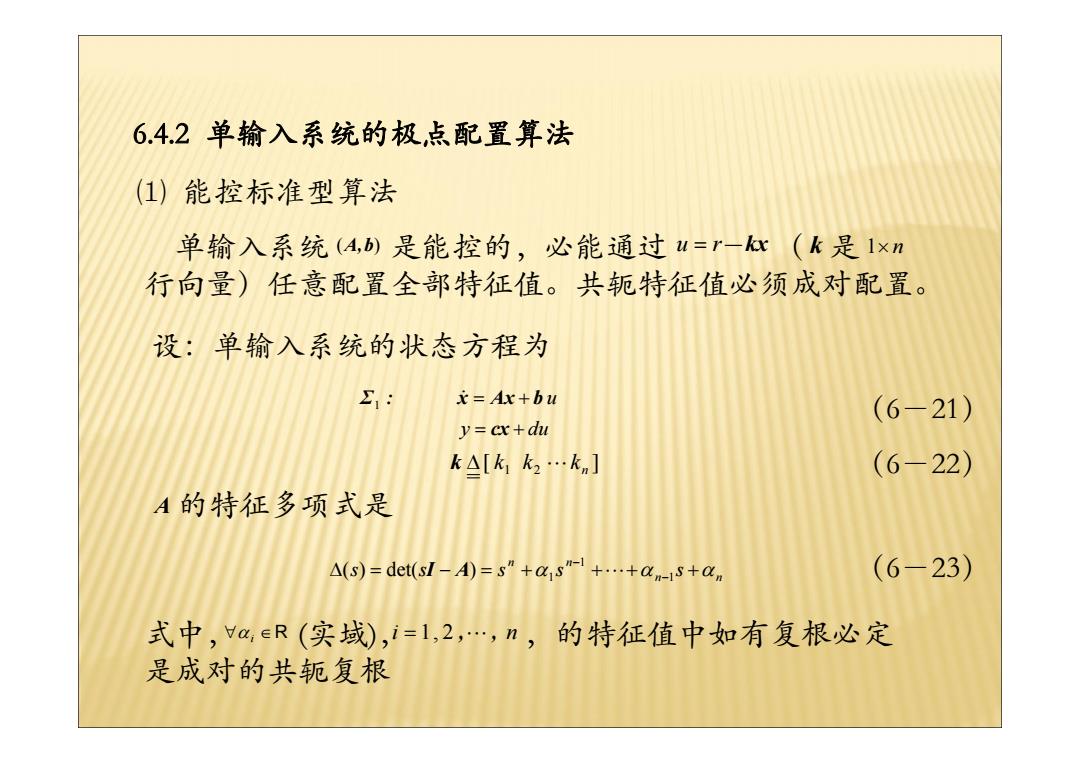 6.4.2 单输入系统的极点配置算法
(1) 能控标准型算法
单输入系统 (A,b) 是能控的，必能通过 u = r－kx （ k 是 1×n
行向量）任意配置全部特征值。共轭特征值必须成对配置。
设：单输入系统的状态方程为
Σ₁ : ẋ = Ax + b u
y = cx + du （6－21）
k ≜ [ k₁ k₂ ⋯ kₙ ] （6－22）
A 的特征多项式是
Δ(s) = det(sI − A) = sⁿ + α₁sⁿ⁻¹ + ⋯ + αₙ₋₁s + αₙ （6－23）
式中，∀αᵢ ∈R (实域)，i = 1, 2 ，⋯，n ，的特征值中如有复根必定
是成对的共轭复根